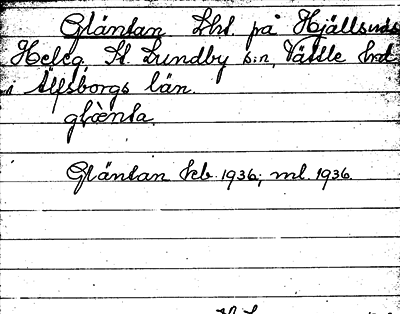 Gläntan Lht på Hjällsnäs
Heleg, St. Lundby s:n, Vättle hd
Älfsborgs län.
glänta.
Gläntan kb. 1936; ml. 1936.